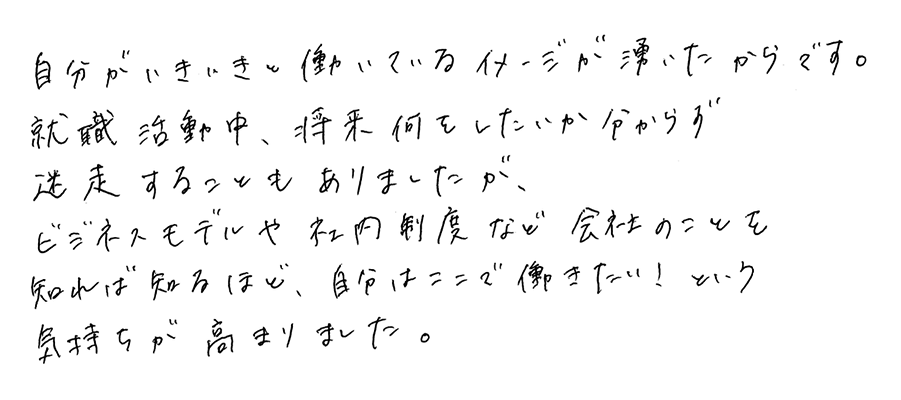 自分がいきいきと働いているイメージが湧いたからです。
就職活動中、将来何をしたいか分からず
迷走することもありましたが、
ビジネスモデルや社内制度など会社のことを
知れば知るほど、自分はここで働きたい！という
気持ちが高まりました。